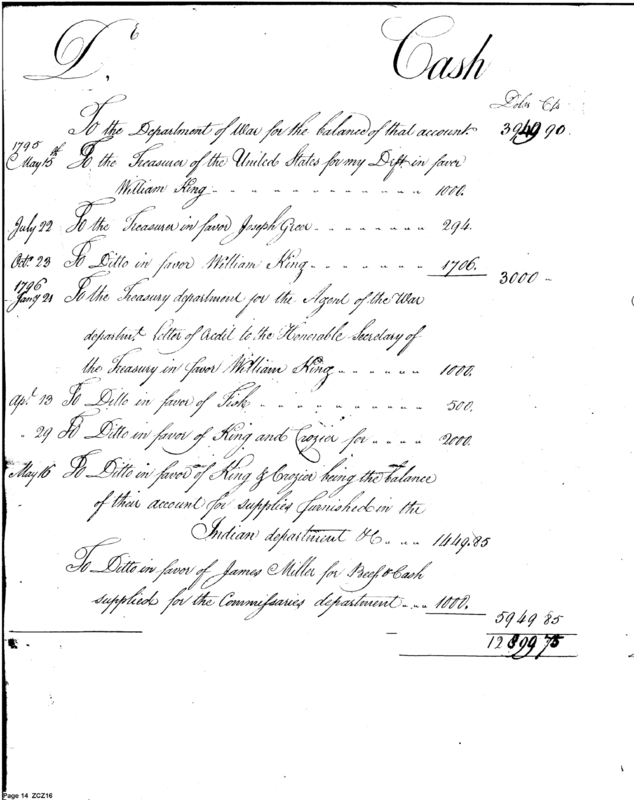 Dr Cash
Dolrs Cts
To the Department of War for the balance of that account 3949 90
1795
May 15th To the Treasurer of the United States for my Dift in favor
William King 1000.
July 22 To the Treasurer in favor Joseph Greer 294.
Octr. 23 To Ditto in favor William King 1706. 3000 "
1796
Jany 21 To the Treasury department for the Agent of the War
departmt. letter of Credit to the Honorable Secretary of
the Treasury in favor William King 1000.
Apl. 13 To Ditto in favor of Fisk 500.
" 29 To Ditto in favor of King and Crozier for 2000.
May 16 To Ditto in favor of King & Crozier being the balance
of their account for supplies furnished in the
Indian department &C 1449.85
To Ditto in favor of James Miller for Beef & Cash
supplied for the Commissaries department 1000.
5949 85
12899 75
Page 14 ZCZ16